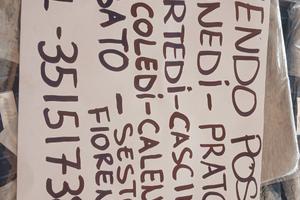 ENDO POS
NEDÌ - PRATO
RTEDÌ - CASCIN
COLEDÌ - CALEN
BATO - SEST
FIOREN
L - 3515173